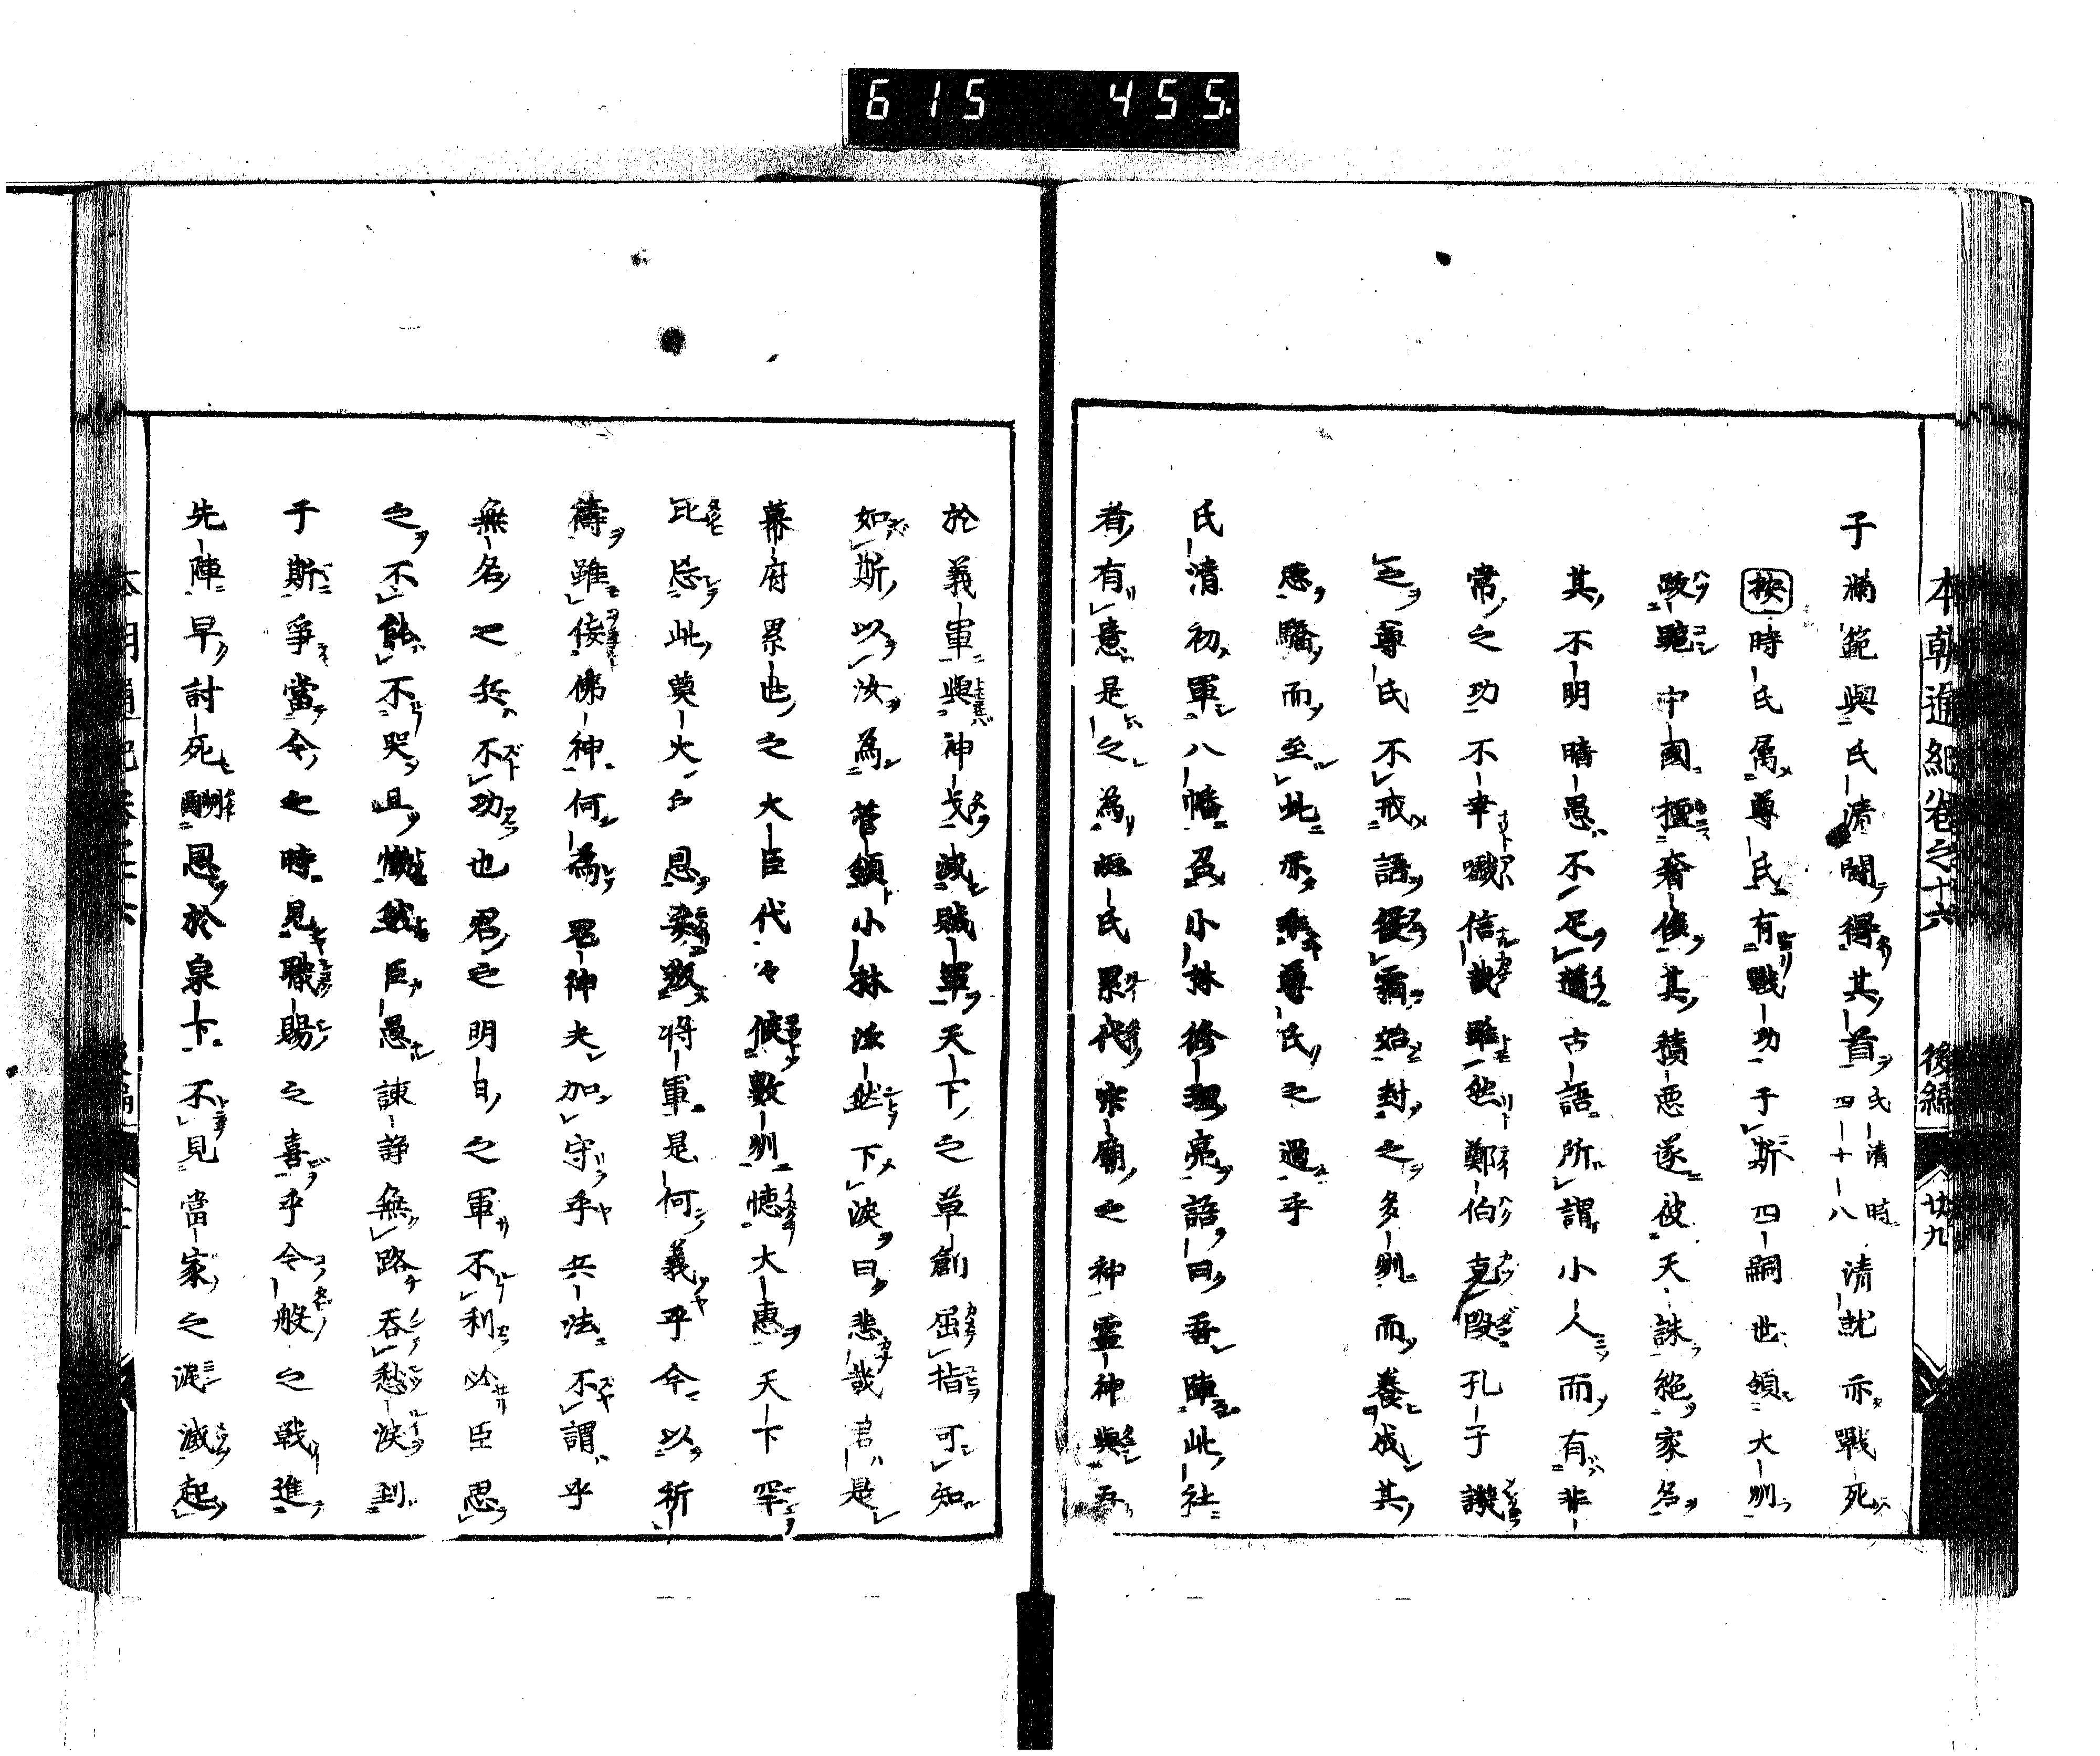 615 455
本朝通紀卷之十六 後編 廿九
子滿範與氏清鬪得其首氏清時四十八清就亦戰死
按時氏属尊氏有戰功于斯四嗣世領大州
跋 中國擅奢侈其積悪遂彼天誅絕家名
其不明暗愚不足道古語所謂小人而有非
常之功不幸 信哉雖然鄭伯克段孔子譏
之尊氏不戒語 霜始封之多州而養成其
悪驕而至此亦 尊氏之過乎
氏清初軍八幡召小林修理亮語曰吾陣此社
者有意是之為源氏累代宗廟之神靈神與吾
於義軍與神戈滅賊軍天下之草創屈指可知
如斯以汝為管領小林泫然下淚曰悲哉言是
幕府累世之大臣代々候數州 大惠天下罕
比忘此莫大 恩 叛將軍是何義乎今以祈
禱雖侫佛神何為君神夫加守乎兵法不謂乎
無名之兵不功也君之明日之軍不利必臣思
之不能不哭且慨然臣愚諫諍無路吞愁淚到
于斯爭當令之時見職賜之喜乎今般之戰進
先陣早討死酬恩於泉下不見當家之滅起